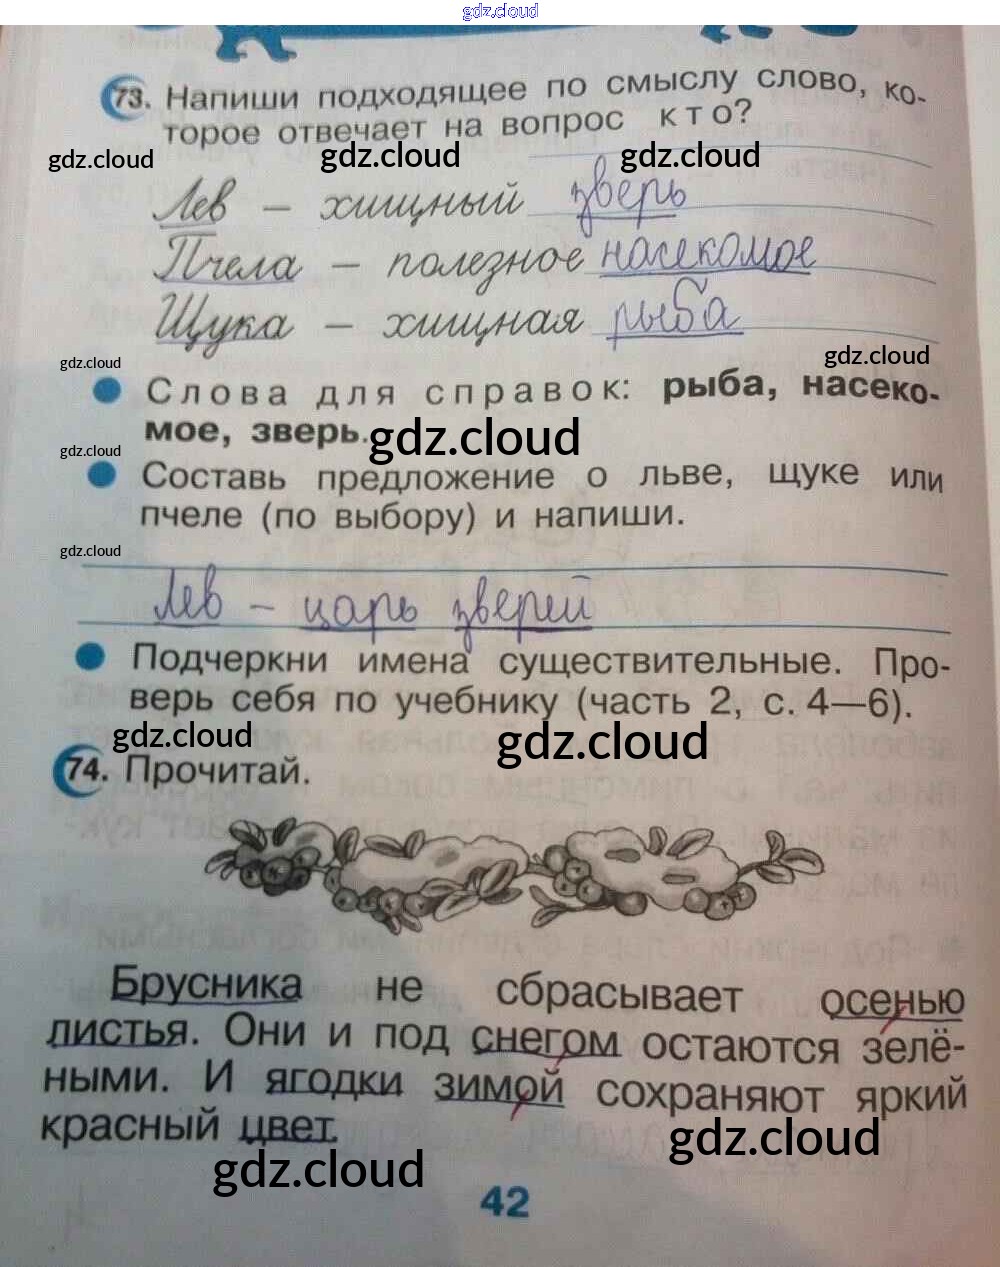 gdz.cloud
73. Напиши подходящее по смыслу слово, ко-
торое отвечает на вопрос кто?
gdz.cloud gdz.cloud gdz.cloud
Лев – хищный зверь
Пчела – полезное насекомое
Щука – хищная рыба
gdz.cloud gdz.cloud
Слова для справок: рыба, насеко-
мое, зверь. gdz.cloud
gdz.cloud
Составь предложение о льве, щуке или
пчеле (по выбору) и напиши.
gdz.cloud
Лев – царь зверей
Подчеркни имена существительные. Про-
верь себя по учебнику (часть 2, с. 4—6).
gdz.cloud gdz.cloud
74. Прочитай.
Брусника не сбрасывает осенью
листья. Они и под снегом остаются зелё-
ными. И ягодки зимой сохраняют яркий
красный цвет.
gdz.cloud gdz.cloud
42